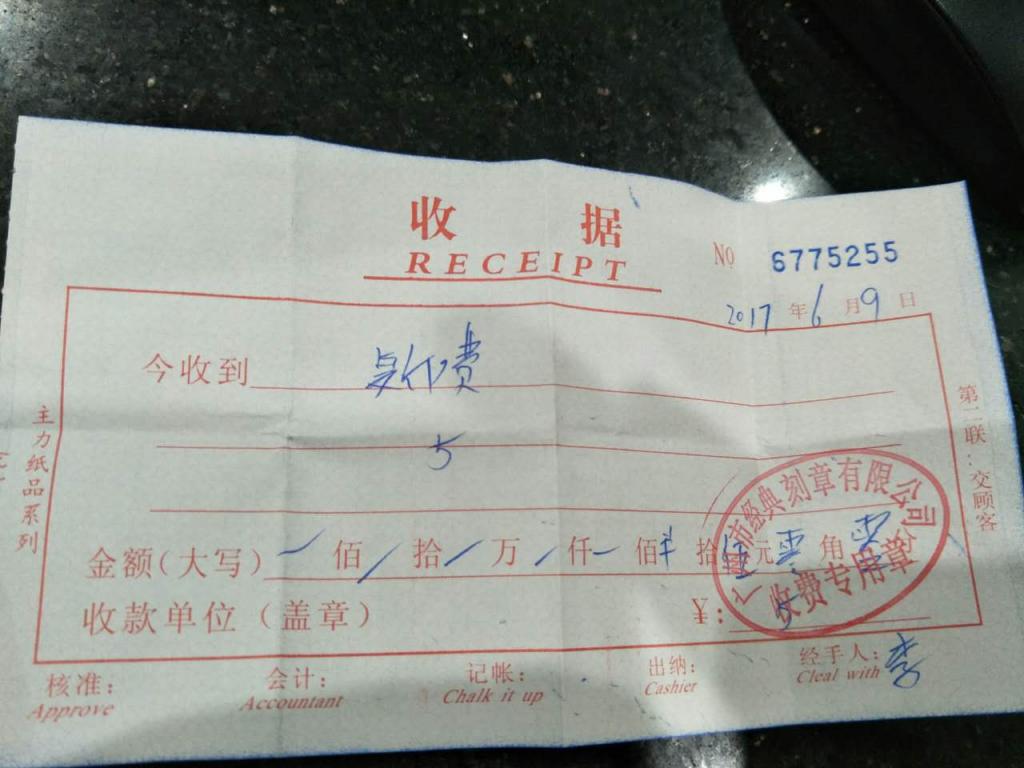 收据
RECEIPT
No 6775255
2017年6月9日
今收到 复印费
5
金额(大写) 佰 拾 万 仟 佰 拾 伍元零角零分
收款单位(盖章) ¥: 5
市经典刻章有限公司
收费专用章
核准: 会计: 记帐: 出纳: 经手人: 李
Approve Accountant Chalk it up Cashier Cleal with
主力纸品系列
第二联:交顾客